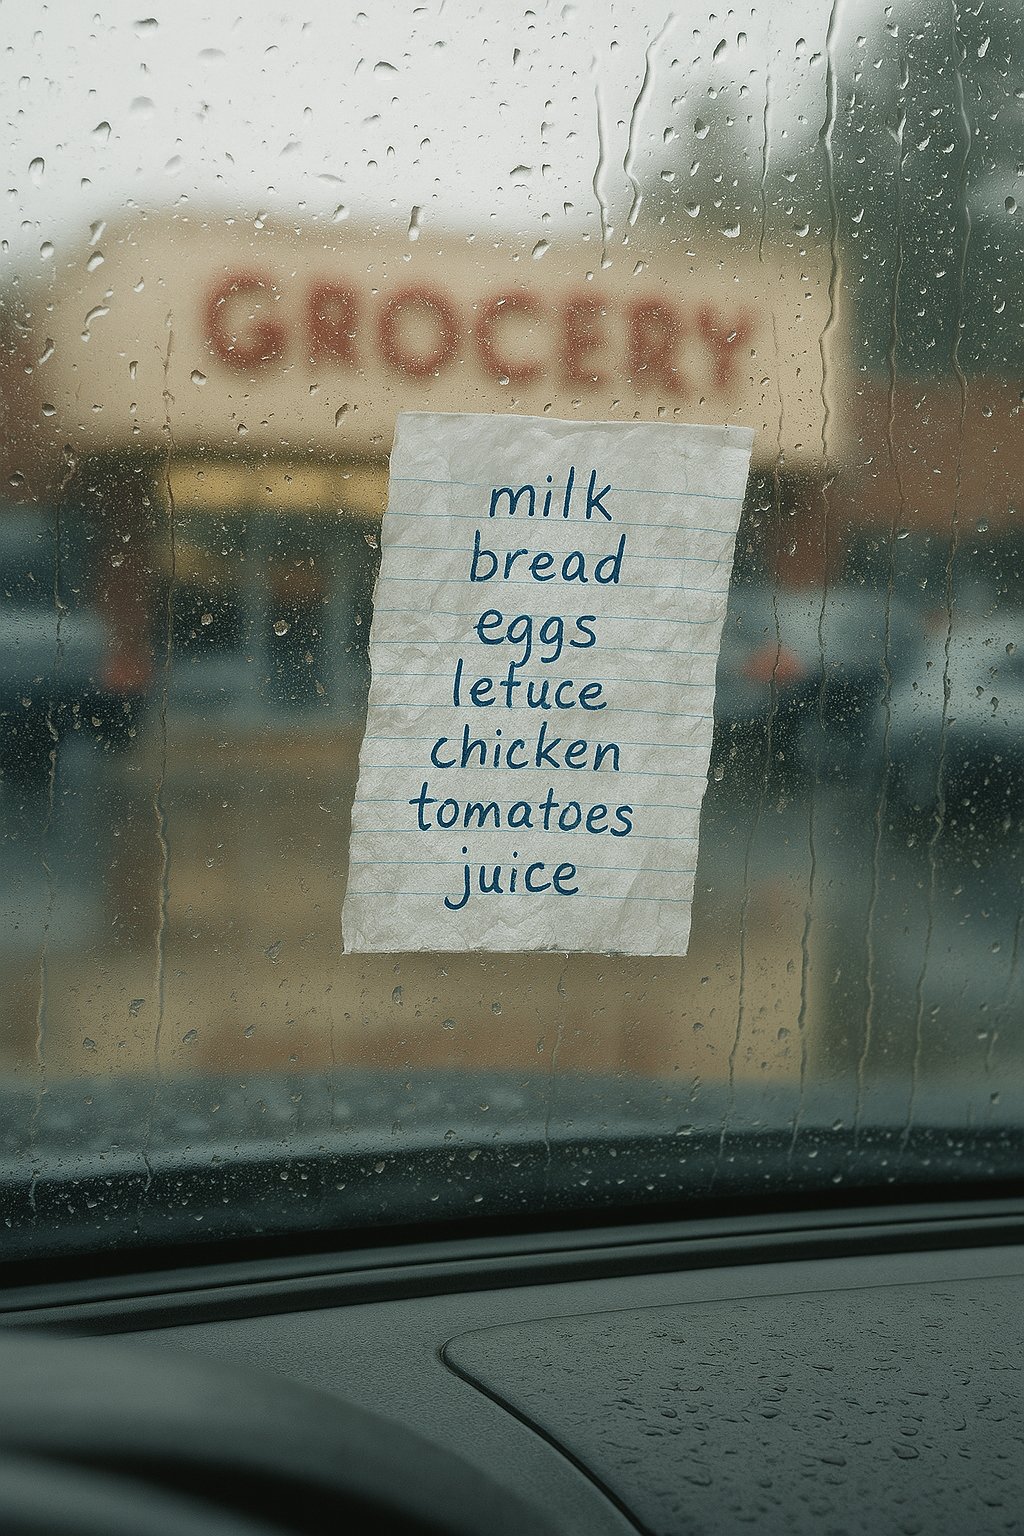 GROCERY
milk
bread
eggs
letuce
chicken
tomatoes
juice